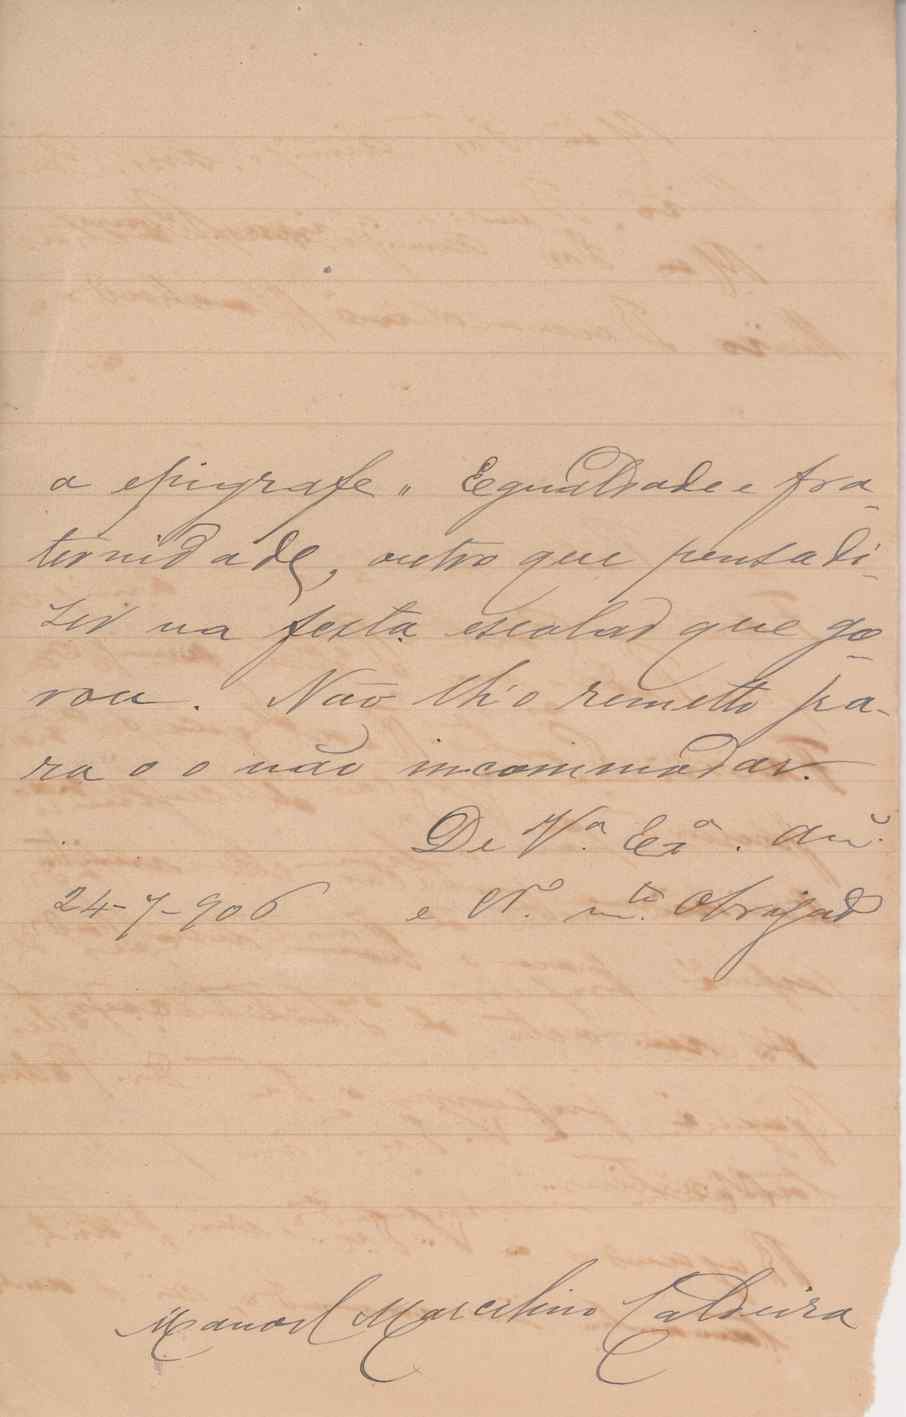 a epigrafe „ Egualdade e fra-
ternidade, outro que pensa di-
zer na festa escolar que go-
rou. Não lh'o remetto pa-
ra o não incommodar.
De V.ª Ex.ª
24-7-906 e m.to obrigado
Manoel Marcelino Caldeira